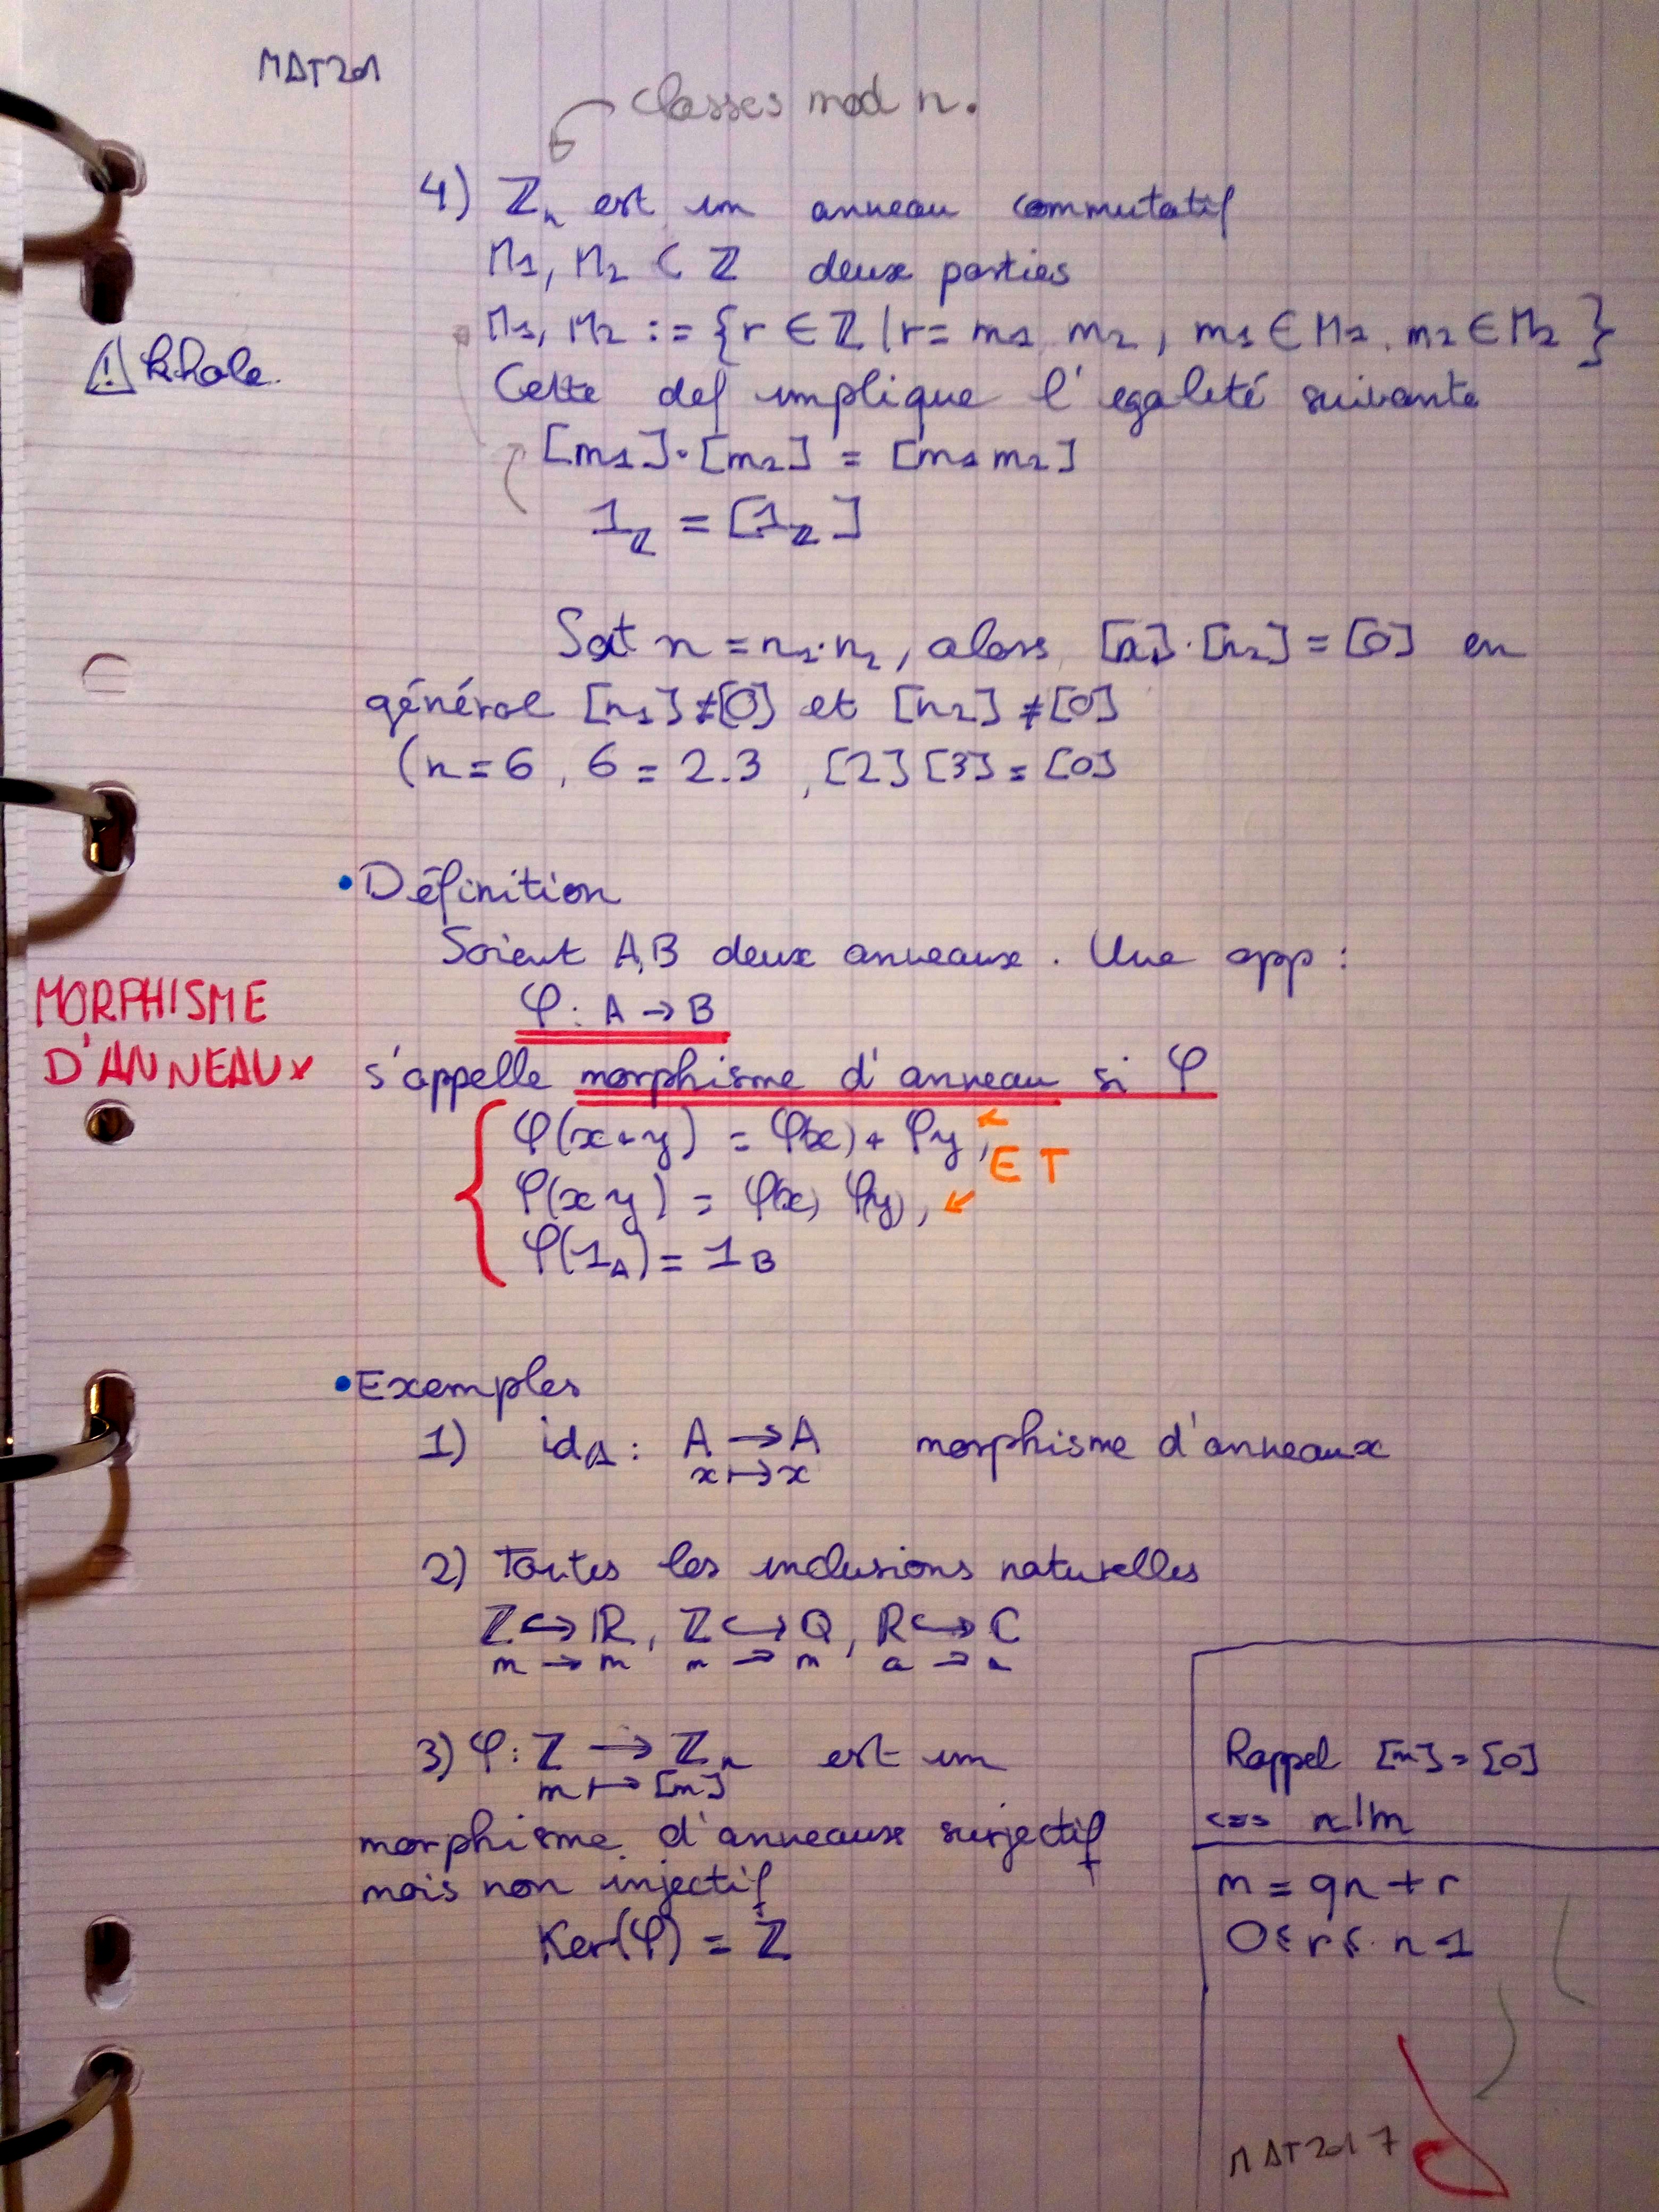 MAT201
classes mod n.
4) ℤₙ est un anneau commutatif
M₁, M₂ ⊂ ℤ deux parties
M₁, M₂ := {r ∈ ℤ | r = m₁ m₂, m₁ ∈ M₁, m₂ ∈ M₂}
Cette def implique l'egalité suivante
[m₁]·[m₂] = [m₁m₂]
1_ℤ = [1_ℤ]
Soit n = n₁·n₂, alors [n₁]·[n₂] = [0] en
général [n₁] ≠ [0] et [n₂] ≠ [0]
(n = 6, 6 = 2.3, [2][3] = [0]
• Définition
Soient A,B deux anneaux. Une app :
φ: A → B
MORPHISME
D'ANNEAUX
s'appelle morphisme d'anneau si φ
φ(x+y) = φ(x) + φy,
ET
φ(xy) = φ(x) φ(y),
φ(1_A) = 1_B
• Exemples
1) id_A : A → A morphisme d'anneaux
x ↦ x
2) Toutes les inclusions naturelles
ℤ ↪ ℝ, ℤ ↪ Q, ℝ ↪ C
m → m n → n a → a
3) φ: ℤ → ℤₙ est un
m ↦ [m]
morphisme d'anneaux surjectif
mais non injectif
Ker(φ) = ℤ
Rappel [m] = [0]
<=> n|m
m = qn + r
0 ≤ r ≤ n-1
MAT201 7